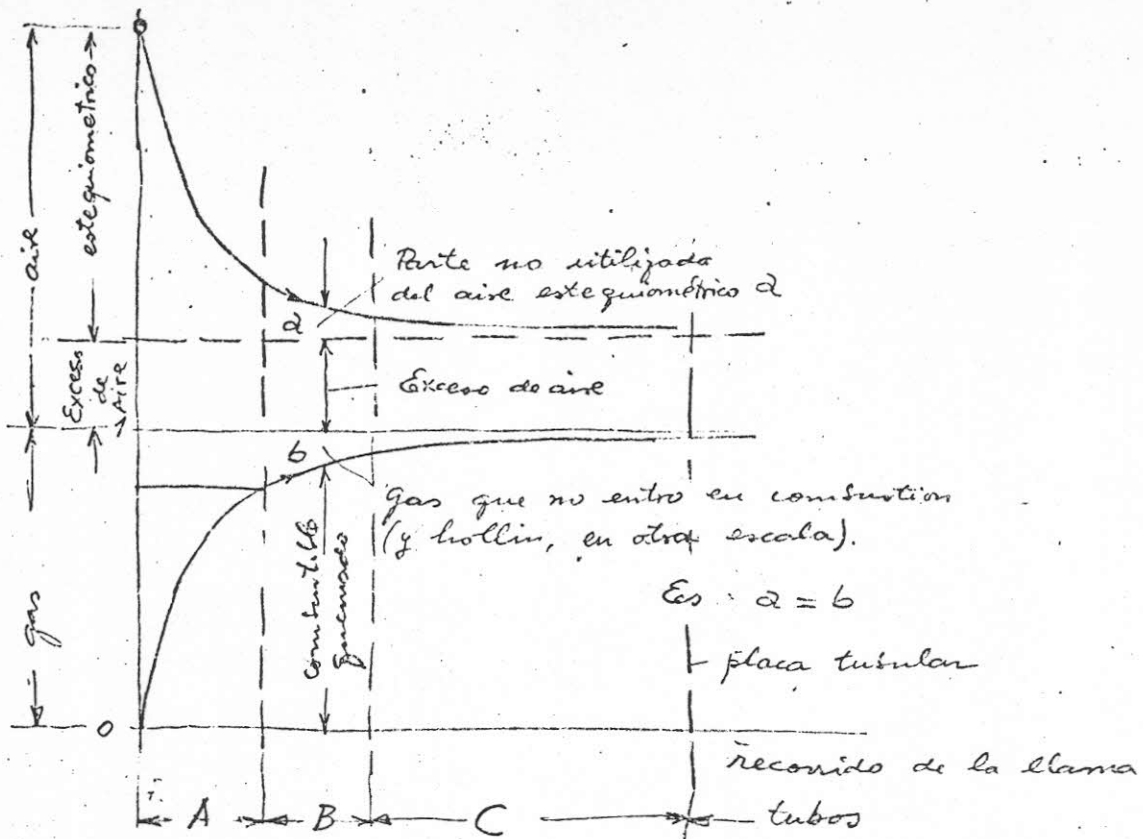 aire
estequiometrico
Exceso
de
Aire
1
gas
0
Parte no utilizada
del aire estequiométrico a
a
Exceso de aire
b
Gas que no entro en combustion
(y hollin, en otra escala).
combustible
quemado
Es : a = b
placa tubular
recorrido de la llama
A
B
C
tubos